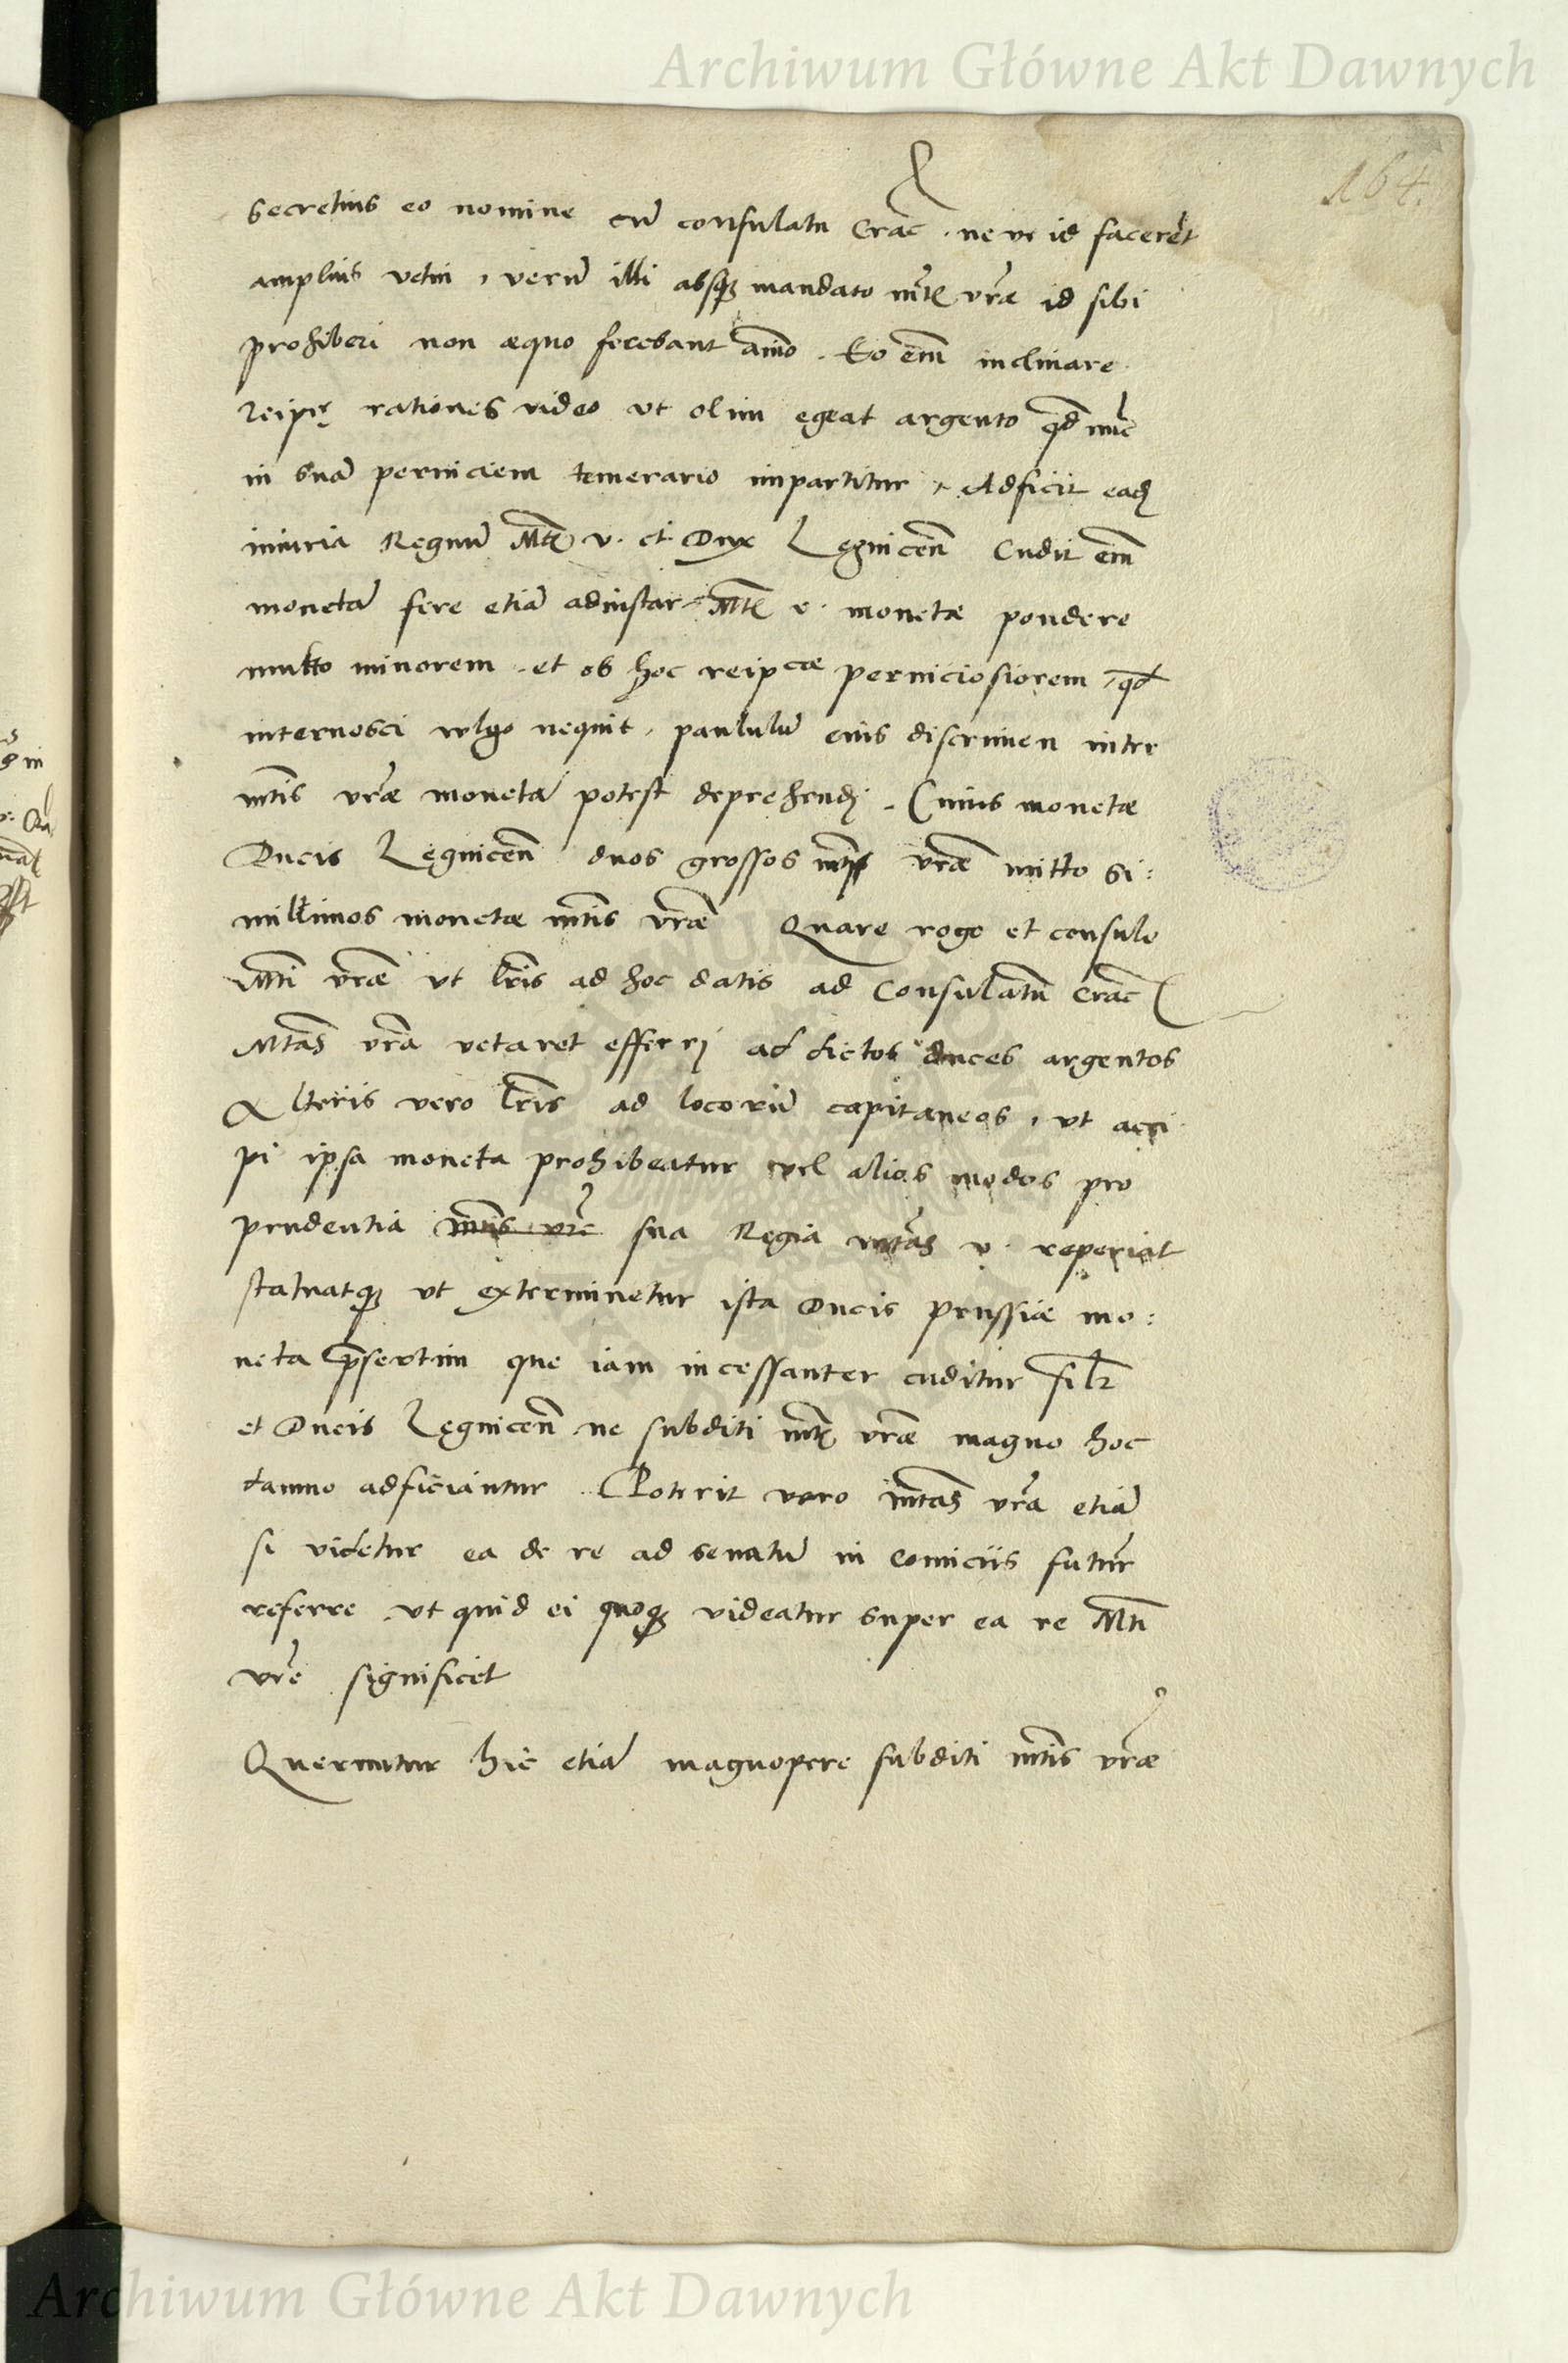 Archiwum Główne Akt Dawnych
164.
secretius eo nomine cū consulatu Crac̄. ne ve id facerēt
amplius vetui, verū illi absq₃ mandato mt̄ꝭ vr̄æ id sibi
prohiberi non æquo ferebant aīmo. Eo em̄ inclinare
reipę rationes video vt olim egeat argento qd̄ nūc
in suā perniciem temerario impartitur, Adficit eadē
iniuria Regnū Mt̄ꝭ v. et Dux Lęgnicen̄ Cudit em̄
monetā fere etiā adinstar Mt̄ꝭ v. monetæ pondere
multo minorem, et ob hoc reipcæ perniciosiorem, qd̄
internosci vulgo nequit, paululū eius discrimen inter
mt̄is vr̄æ monetā potest deprehendj. Cuius monetæ
Ducis Lęgnicen̄ duos grossos mt̄i vr̄æ mitto si:
millimos monetæ mt̄is vr̄æ Quare rogo et consulo
Mt̄i vr̄æ vt lr̄is ad hoc datis ad Consulatum Crac̄
Mtas̄ vr̄a vetaret efferrj ad dictos duces argentos
Alteris vero lr̄is ad locorū capitaneos, vt acci
pi ipsa moneta prohibeatur vel alios modos pro
prudentia mt̄is vr̄e sua Regia mtas̄ v. reperiat
statuatq₃ vt exterminetur ista Ducis prussiæ mo:
neta p̄sertim que iam incessanter cuditur silr̄
et Ducis Lęgnicen̄ ne subditi mt̄ꝭ vr̄æ magno hoc
damno adficiantur. Poterit vero mtas̄ vr̄a etiā
si videtur ea de re ad senatū in comiciis futur̄
referre, vt quid ei quoq₃ videatur super ea re Mt̄i
vr̄e significet
Queruntur hic etiā magnopere subditi mt̄is vr̄æ
Archiwum Główne Akt Dawnych